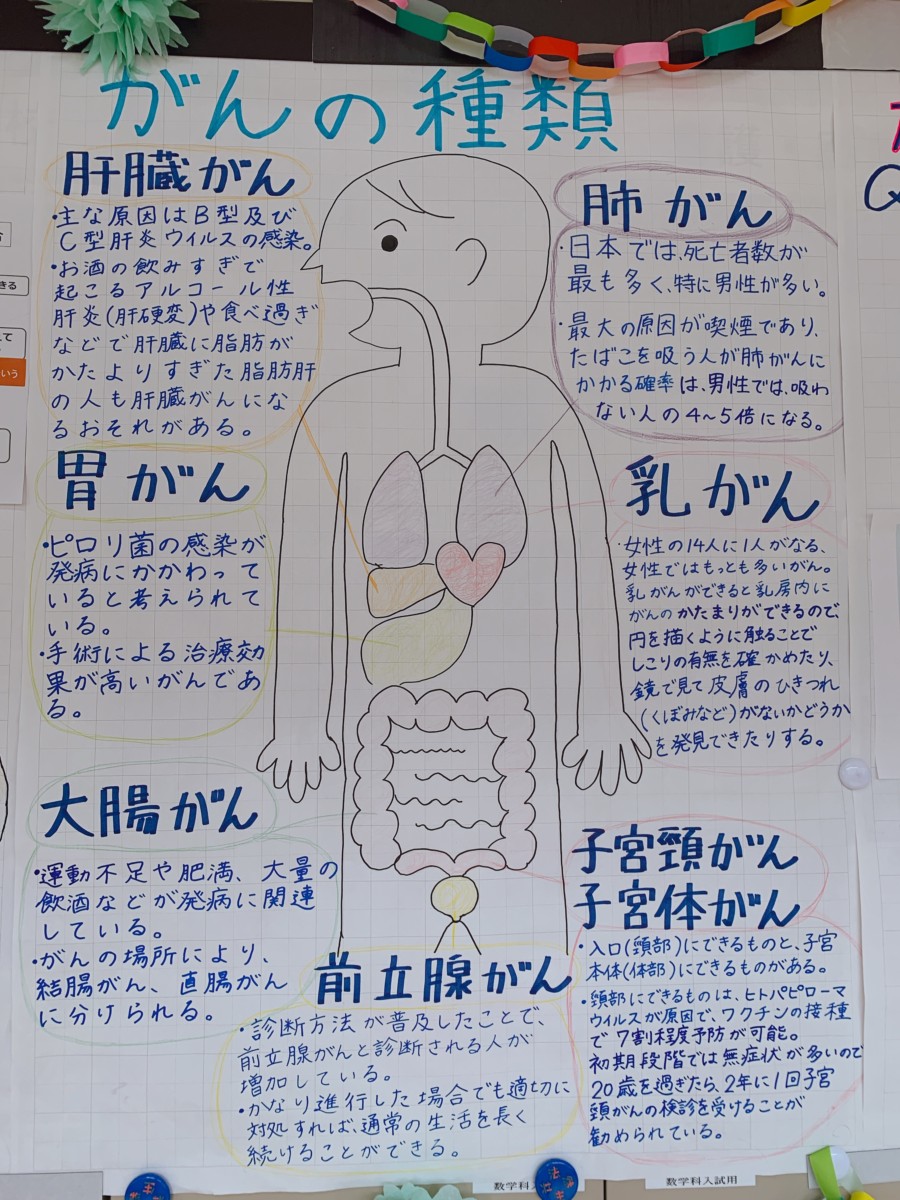 がんの種類
肝臓がん
・主な原因はB型及び
C型肝炎ウイルスの感染。
・お酒の飲みすぎで
起こるアルコール性
肝炎(肝硬変)や食べ過ぎ
などで肝臓に脂肪が
かたよりすぎた脂肪肝
の人も肝臓がんにな
るおそれがある。
胃がん
・ピロリ菌の感染が
発病にかかわって
いると考えられて
いる。
・手術による治療効
果が高いがんであ
る。
大腸がん
・運動不足や肥満、大量の
飲酒などが発病に関連
している。
・がんの場所により、
結腸がん、直腸がん
に分けられる。
前立腺がん
・診断方法が普及したことで、
前立腺がんと診断される人が
増加している。
・かなり進行した場合でも適切に
対処すれば、通常の生活を長く
続けることができる。
肺がん
・日本では、死亡者数が
最も多く、特に男性が多い。
・最大の原因が喫煙であり、
たばこを吸う人が肺がんに
かかる確率は、男性では、吸わ
ない人の4～5倍になる。
乳がん
・女性の14人に1人がなる、
女性ではもっとも多いがん。
乳がんができると乳房内に
がんのかたまりができるので、
円を描くように触ることで
しこりの有無を確かめたり、
鏡で見て皮膚のひきつれ
(くぼみなど)がないかどうか
を発見できたりする。
子宮頸がん
子宮体がん
・入口(頸部)にできるものと、子宮
本体(体部)にできるものがある。
・頸部にできるものは、ヒトパピローマ
ウイルスが原因で、ワクチンの接種
で7割程度予防が可能。
初期段階では無症状が多いので
20歳を過ぎたら、2年に1回子宮
頸がんの検診を受けることが
勧められている。
きる
いう
Q
数学科入
数学科入試用